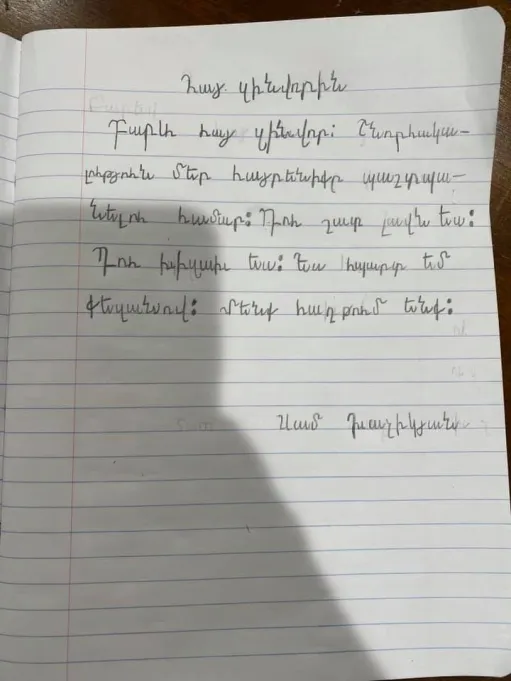 Հայ զինվորին
Բարև հայ զինվոր: Շնորհակա-
լություն մեր հայրենիքը պաշտպա-
նելու համար: Դու շատ լավն ես:
Դու խիզախ ես: Ես հպարտ եմ
քեզանով: Մենք հաղթում ենք:
Սամ Խաչիկյան